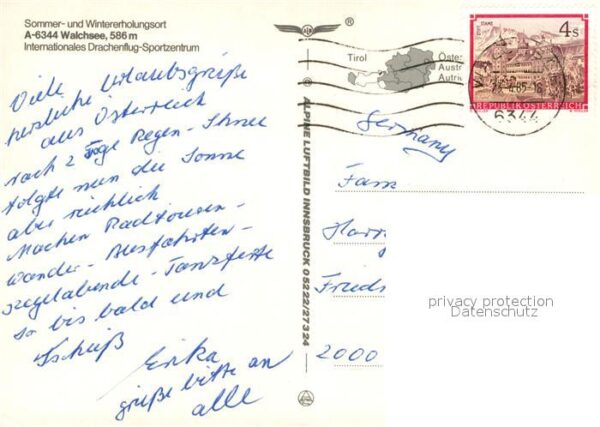 Sommer- und Wintererholungsort
A-6344 Walchsee, 586 m
Internationales Drachenflug-Sportzentrum
Viele
herzliche Urlaubsgrüße
aus Österreich
nach 2 Tage Regen - Schnee
folgte nun die Sonne
aber reichlich
Machen Radtouren -
wander - Ausfahrten -
segelabende - Tanzfeste
so bis bald und
Tschüß
Erika
grüße bitte an
alle
® ALPINE LUFTBILD INNSBRUCK 05222/27324
®
Tirol
Öste
Austr
Autri
STAMS
4s
REPUBLIK ÖSTERREICH
6344
Germany
Fam
Harr
Frieds
2000
privacy protection
Datenschutz